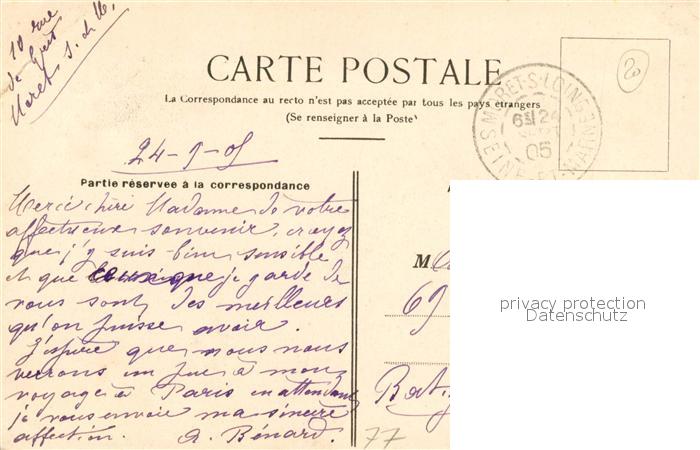 10 rue
de
Moret s. L.
CARTE POSTALE
La Correspondance au recto n'est pas acceptée par tous les pays étrangers
(Se renseigner à la Poste)
MORET-S-LOING
6 24
05
SEINE-ET-MARNE
20
24-9-05
Partie réservée à la correspondance
Merci chère Madame de votre
affectueux souvenir, croyez
que j'y suis bien sensible
et que ceux que je garde de
vous sont des meilleurs
qu'on puisse avoir.
J'espère que nous nous
verrons un peu à mon
voyage à Paris en attendant
je vous envoie ma sincère
affection. A. Bénard.
M
69
Bat
77
privacy protection
Datenschutz